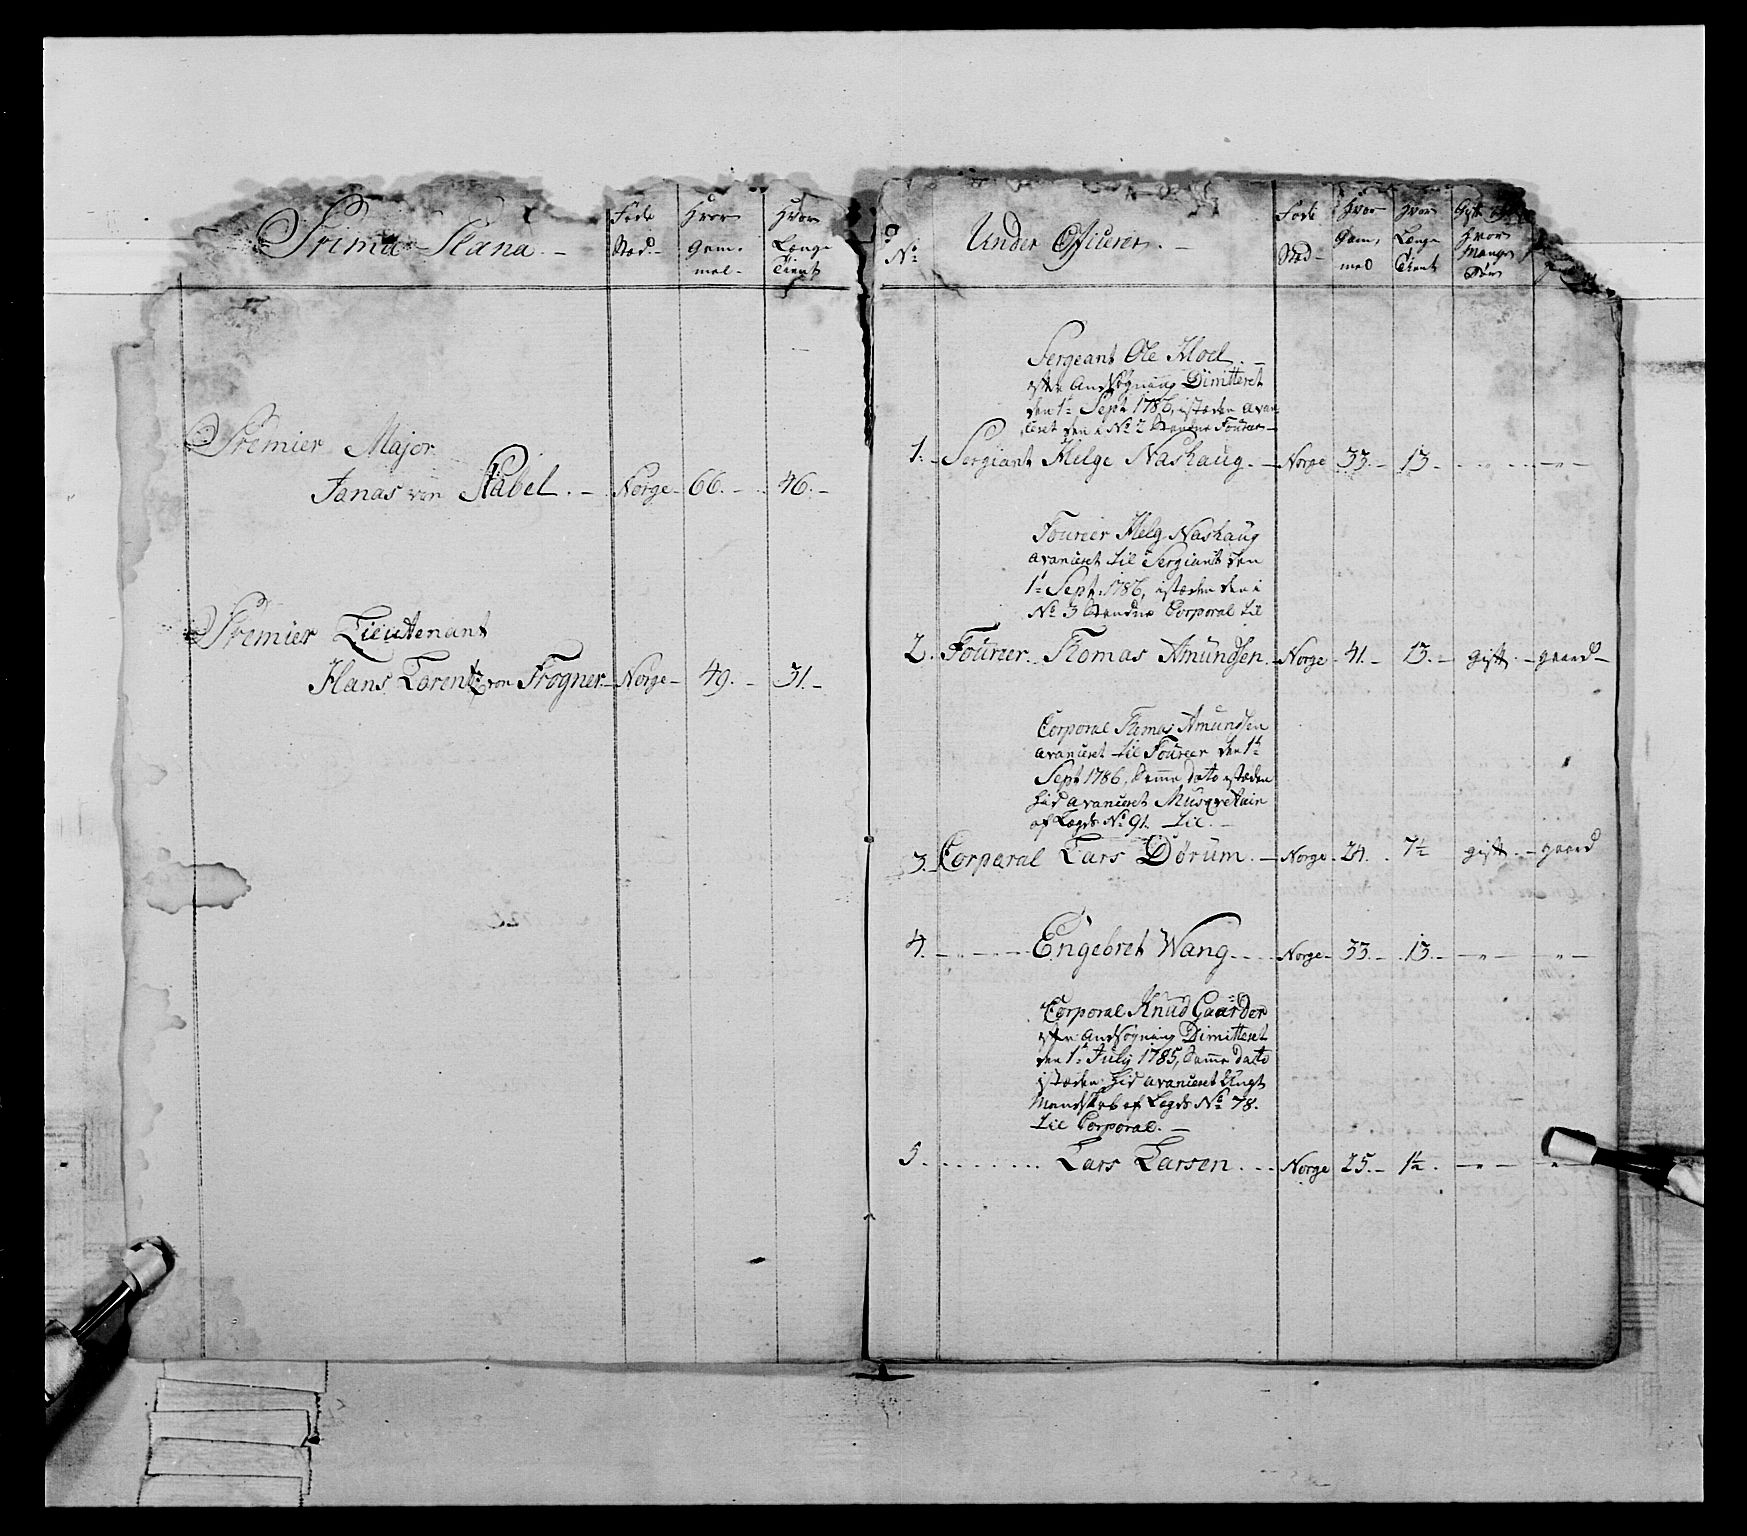 Prima Plana. -
Føde Stæd. -
Hvor Gam- mel. -
Hvor Længe Tient
Premier Major
Jonas von Stabel. - Norge - 66. - 46. -
Premier Lieutenant
Hans Lorentz von Frogner. - Norge - 49. - 31. -
No
Under Officerer. -
Føde Stæd -
Hvor Gam- mel
Hvor Længe Tient
Gift Hvor Mange Børn
Sergeant Ole Moel. -
efter Ansøgning Dimitteret
den 1te Sept 1786, istæden avan-
ceret den i No 2 Staaende Fourier -
1. Sergiant Helge Nashaug. - Norge 33. - 13. - - „ - - „ -
Fourier Helg Nashaug
avanceret til Sergiant den
1te Sept. 1786, istæden den i
No 3 Staaende Corporal til
2. Fourier Tomas Amundsen. - Norge - 41. - 13. - gift. - gaard -
Corporal Tamas Amundsen
avanceret til Fourier den 1te
Sept 1786, Samme dato istæden
hid avanceret Musqvetair
af Lægds No 91. til. -
3. Corporal Lars Dørum. - Norge - 24. 7½ gift. - gaard
4. - „ - - Engebret Wang. - - Norge - 33. - 13. - - „ - - „ -
Corporal Knud Gaarder
efter Ansøgning Dimitteret
den 1te July 1785, Samme dato
istæden hid avanceret Ungt
Mandskab af Lægds No 78.
til Corporal. -
5. - - - - Lars Larsen. - - Norge 25. - 1½. - „ - - „ -